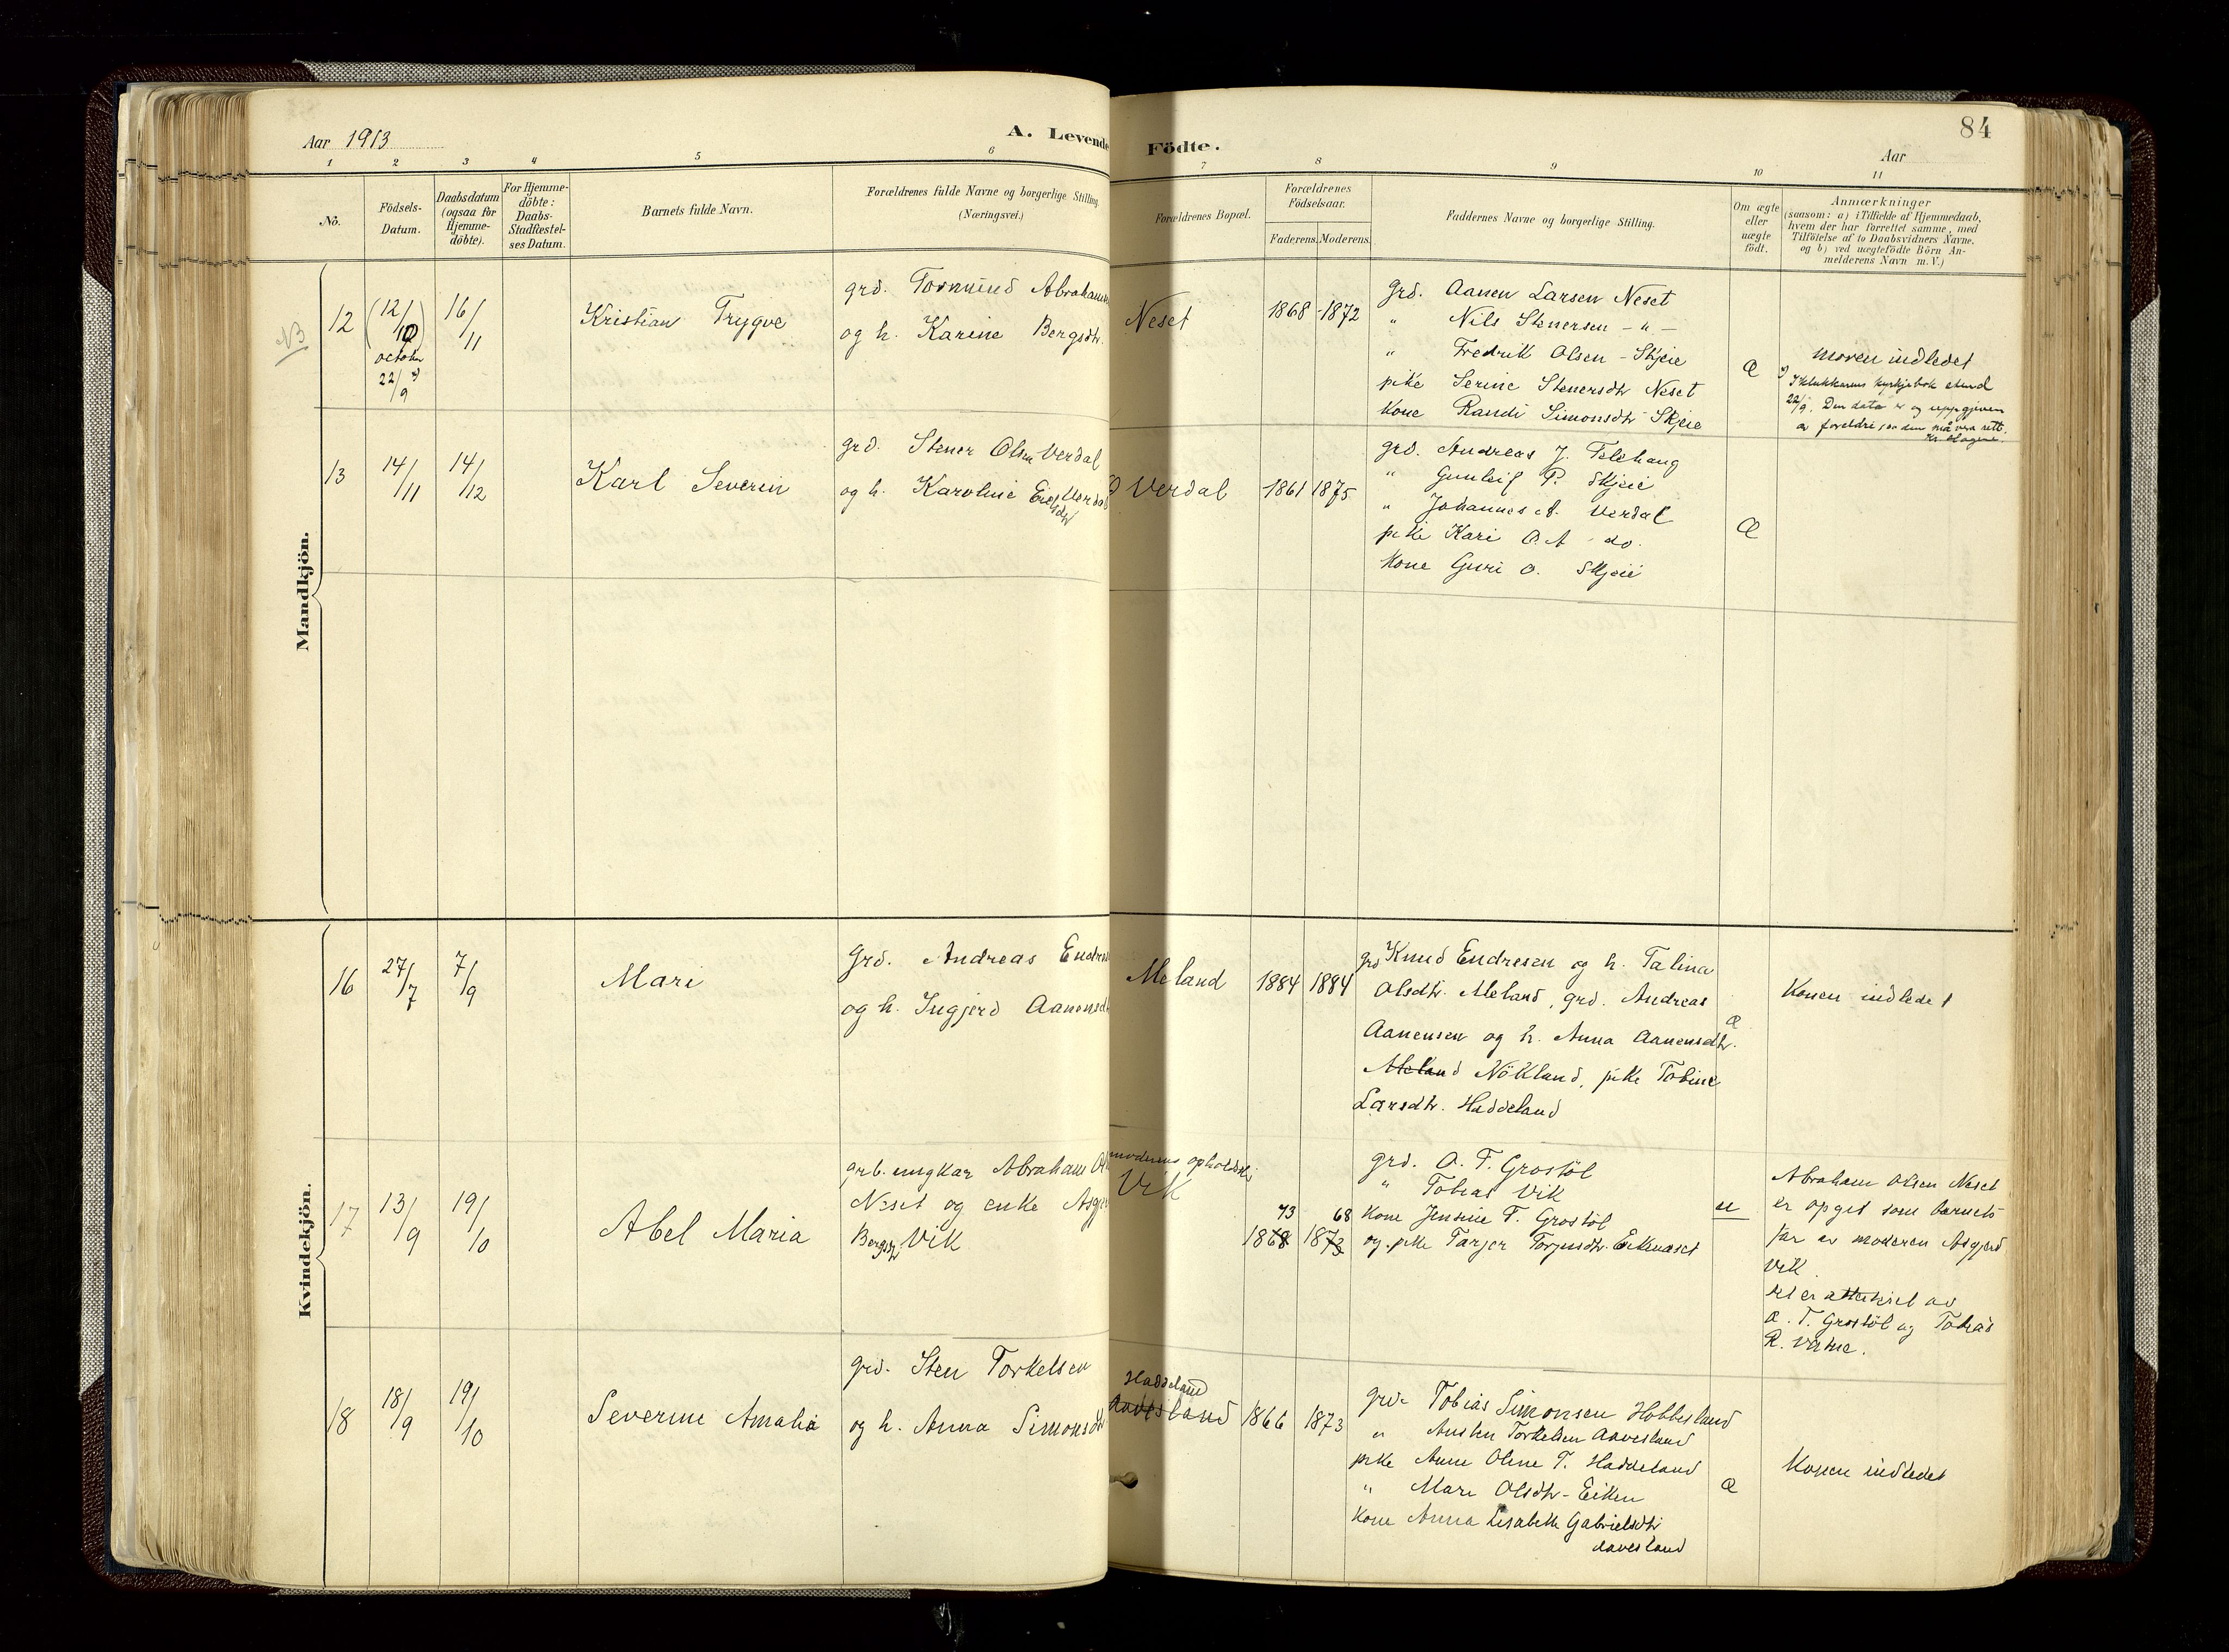 Aar 1913
A. Levende Födte.
84
Aar
1 2 3 4 5 6 7 8 9 10 11
Nö.
Födsels-
Datum.
Daabsdatum
(ogsaa for
Hjemme-
döbte).
For Hjemme-
döbte:
Daabs-
Stadfæstel-
ses Datum.
Barnets fulde Navn.
Forældrenes fulde Navne og borgerlige Stilling.
(Næringsvei.)
Forældrenes Bopæl.
Forældrenes
Födselsaar.
Faderens. Moderens.
Faddernes Navne og borgerlige Stilling.
Om ægte
eller
uægte
födt.
Anmærkninger
(saasom: a) i Tilfælde af Hjemmedaab,
hvem der har forrettet samme, med
Tilföielse af to Daabsvidners Navne.
og b) ved uægtefödte Börn An-
melderens Navn m. V.)
Mandkjön.
NB
12
(12/10)
october
22/9
16/11
Kristian Trygve
grd. Tormund Abraham
og h. Karine Bergsdtr.
Neset
1868 - 1872
grd. Aanen Larsen Neset
" Nils Stenersen - " -
" Fredrik Olsen - Skjeie
pike Serine Stenersdtr Neset
Kone Randi Simonsdtr Skjeie
Æ
moren indledet
I klukkarens kyrkjebok stend
22/9. Den dato er og uppgjeven
av foreldri so den må vera rett.
13
14/11
14/12
Karl Severin
grd. Stener Olsen Verdal
og h. Karoline Eielsdtr Verdal
Verdal
1861 1875
grd. Andreas J. Telehaug
" Gunleif P. Skjeie
" Johannes A. Verdal
pike Kari O. A - do.
Kone Guri O. Skjeie
Æ
Kvindekjön.
16
27/7
7/9
Mari
Grd. Andreas Endres
og h. Ingjerd Aanensdt
Meland
1884 1884
grd Knud Endresen og h. Talina
Olsdtr. Meland, grd. Andreas
Aanensen og h. Anna Aanensdtr.
Meland Nökland, pike Tobine
Larsdtr. Haddeland
Æ
Konen indledet
17
13/9
19/10
Abel Maria
grb. ungkar Abraham Ol
Neset og enke Asgje
Bergsdtr Vik
moderens opholdssted
Vik
73 68
1868 1873
grd. O. T. Grostöl
" Tobias Vik
Kone Jensine T. Grostöl
og pike Tarjer Torjusdtr. Eikenaset
u
Abraham Olsen Neset
er opgit som barnets
far av moderen Asgjerd
Vik.
Det er attestert av
O. T. Grostöl og Tobias
R. Vatne.
18
18/9
19/10
Severine Amalia
grd. Sten Torkelsen
og h. Anna Simonsdtr
Haddeland
Aavesland
1866 1873
grd. Tobias Simonsen Hobbesland
" Austen Torkelsen Aavesland
pike Anne Oline T. Haddeland
" Mari Olsdtr - Eiken
Kone Anna Lisabeth Gabrielsdtr
Aavesland
Æ
Konen indledet